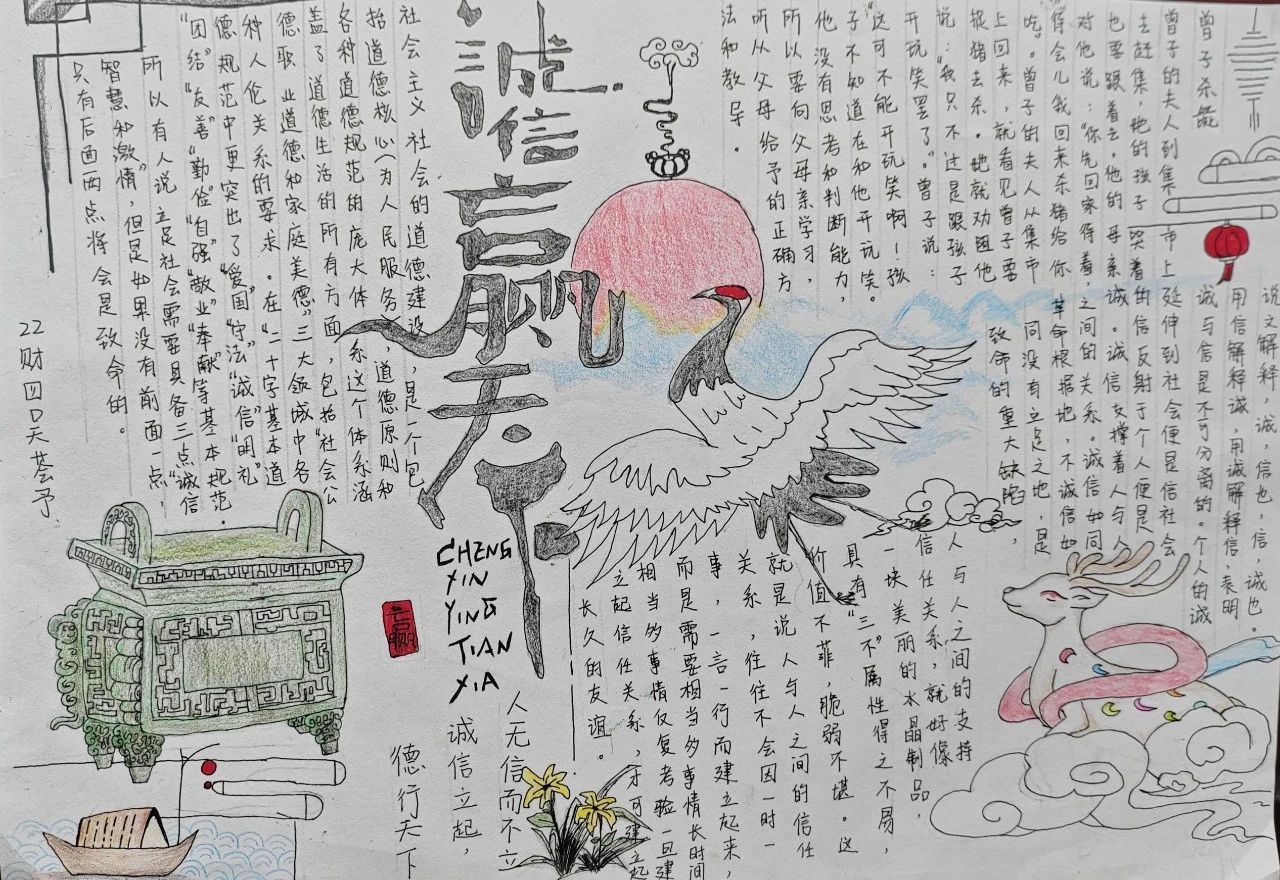 曾子杀彘
曾子的夫人到集市上
去赶集，他的孩子哭着
也要跟着去。他的母亲
对他说：“你先回家待着，
待会儿我回来杀猪给你
吃”。曾子的夫人从集市
上回来，就看见曾子要
捉猪去杀。她就劝阻他
说：“我只不过是跟孩子
开玩笑罢了。”曾子说：
“这可不能开玩笑啊！孩
子不知道在和他开玩笑。
他没有思考和判断能力，
所以要向父母亲学习，
听从父母给予的正确方
法和教导.
誠信贏天下
CHENG
XIN
YING
TIAN
XIA
赢
社会主义社会的道德建设，是一个包
抬道德核心（为人民服务），道德原则和
各种道德规范的庞大体系这个体系涵
盖了道德生活的所有方面，包括“社会公
德职业道德和家庭美德”三大领域中各
种人伦关系的要求。在“二十字基本道
德规范中更突出了“爱国”“守法”“诚信”“明礼”
“团结”“友善”“勤俭”“自强”“敬业”“奉献”等基本规范.
所以有人说立足社会需要具备三点“诚信
智慧和激情”，但是如果没有前面一点，
只有后面两点将会是致命的。
22财四口天荟予
说文解释，诚，信也，信，诚也。
用信解释诚，用诚解释信，表明
诚与信是不可分离的。个人的诚
延伸到社会便是信社会
的信反射于个人便是
诚。诚信支撑着人与人
之间的关系。诚信如同
革命根据地，不诚信如
同没有立足之地，是
致命的重大缺陷，
人与人之间的支持
信任关系，就好像
一块美丽的水晶制品，
具有“三不”属性得之不易，
价值不菲，脆弱不堪。这
就是说人与人之间的信任
关系，往往不会因一时一
事，一言一行而建立起来，
而是需要相当多事情长时间
相当多事情反复考验一旦建
之起信任关系，才可建立起
长久的友谊。
人无信而不立
诚信立起，
德行天下